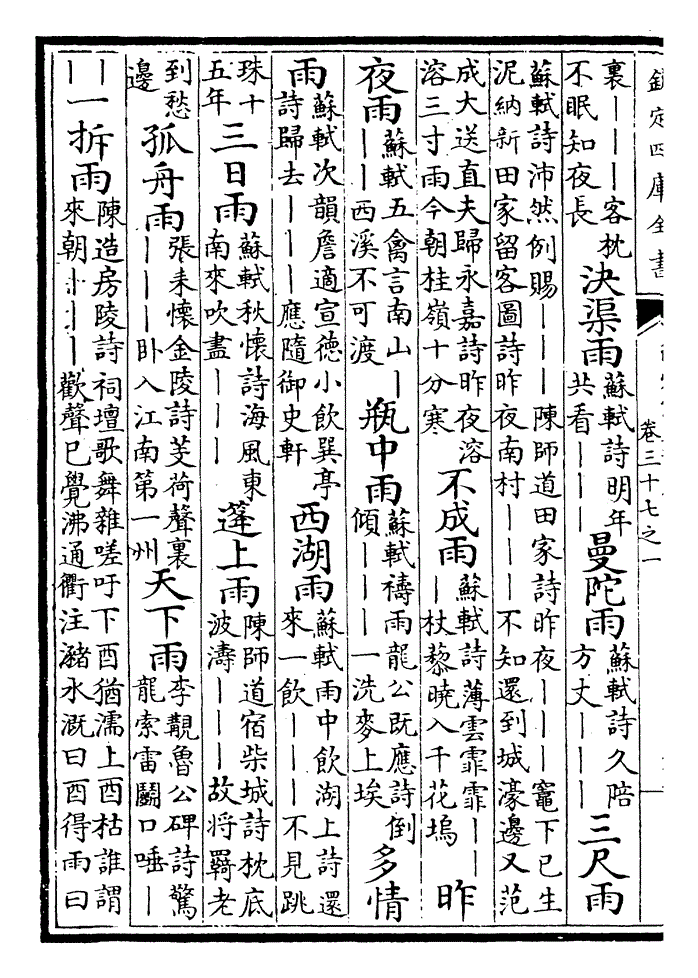 欽定四庫全書
卷三十七之一
裏｜｜｜客枕不眠知夜長 決渠雨 蘇軾詩明年共看｜｜｜ 曼陀雨 蘇軾詩久陪方丈｜｜｜ 三尺雨
蘇軾詩沛然例賜｜｜｜陳師道田家詩昨夜｜｜｜竈下已生
泥納新田家留客圖詩昨夜南村｜｜｜不知還到城濠邊又范
成大送直夫歸永嘉詩昨夜溶溶三寸雨今朝桂嶺十分寒 不成雨 蘇軾詩薄雲霏霏｜｜｜杖藜曉入千花塢 昨
夜雨 蘇軾五禽言南山｜｜｜西溪不可渡 瓶中雨 蘇軾禱雨龍公既應詩倒傾｜｜｜一洗麥上埃 多情
雨 蘇軾次韻詹適宣德小飲巽亭詩歸去｜｜｜應隨御史軒 西湖雨 蘇軾雨中飲湖上詩還來一飲｜｜｜不見跳
珠十五年 三日雨 蘇軾秋懷詩海風東南來吹盡｜｜｜ 蓬上雨 陳師道宿柴城詩枕底波濤｜｜｜故將羇老
到愁邊 孤舟雨 張耒懷金陵詩芰荷聲裏｜｜｜卧入江南第一州 天下雨 李覯魯公碑詩驚龍索雷鬭口唾｜
｜｜ 一拆雨 陳造房陵詩祠壇歌舞雜嗟吁下酉猶濡上酉枯誰謂
來朝｜｜｜歡聲已覺沸通衢注瀦水溉曰酉得雨曰